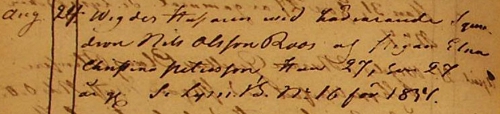 Aug 24. Wigdes Husaren wid härvarande Squa-
dron Nils Olsson Roos och Pigan Elna
Christina Petersson, han 27, hon 27
år gl. Se Lysn.B. No 16 för 1837.